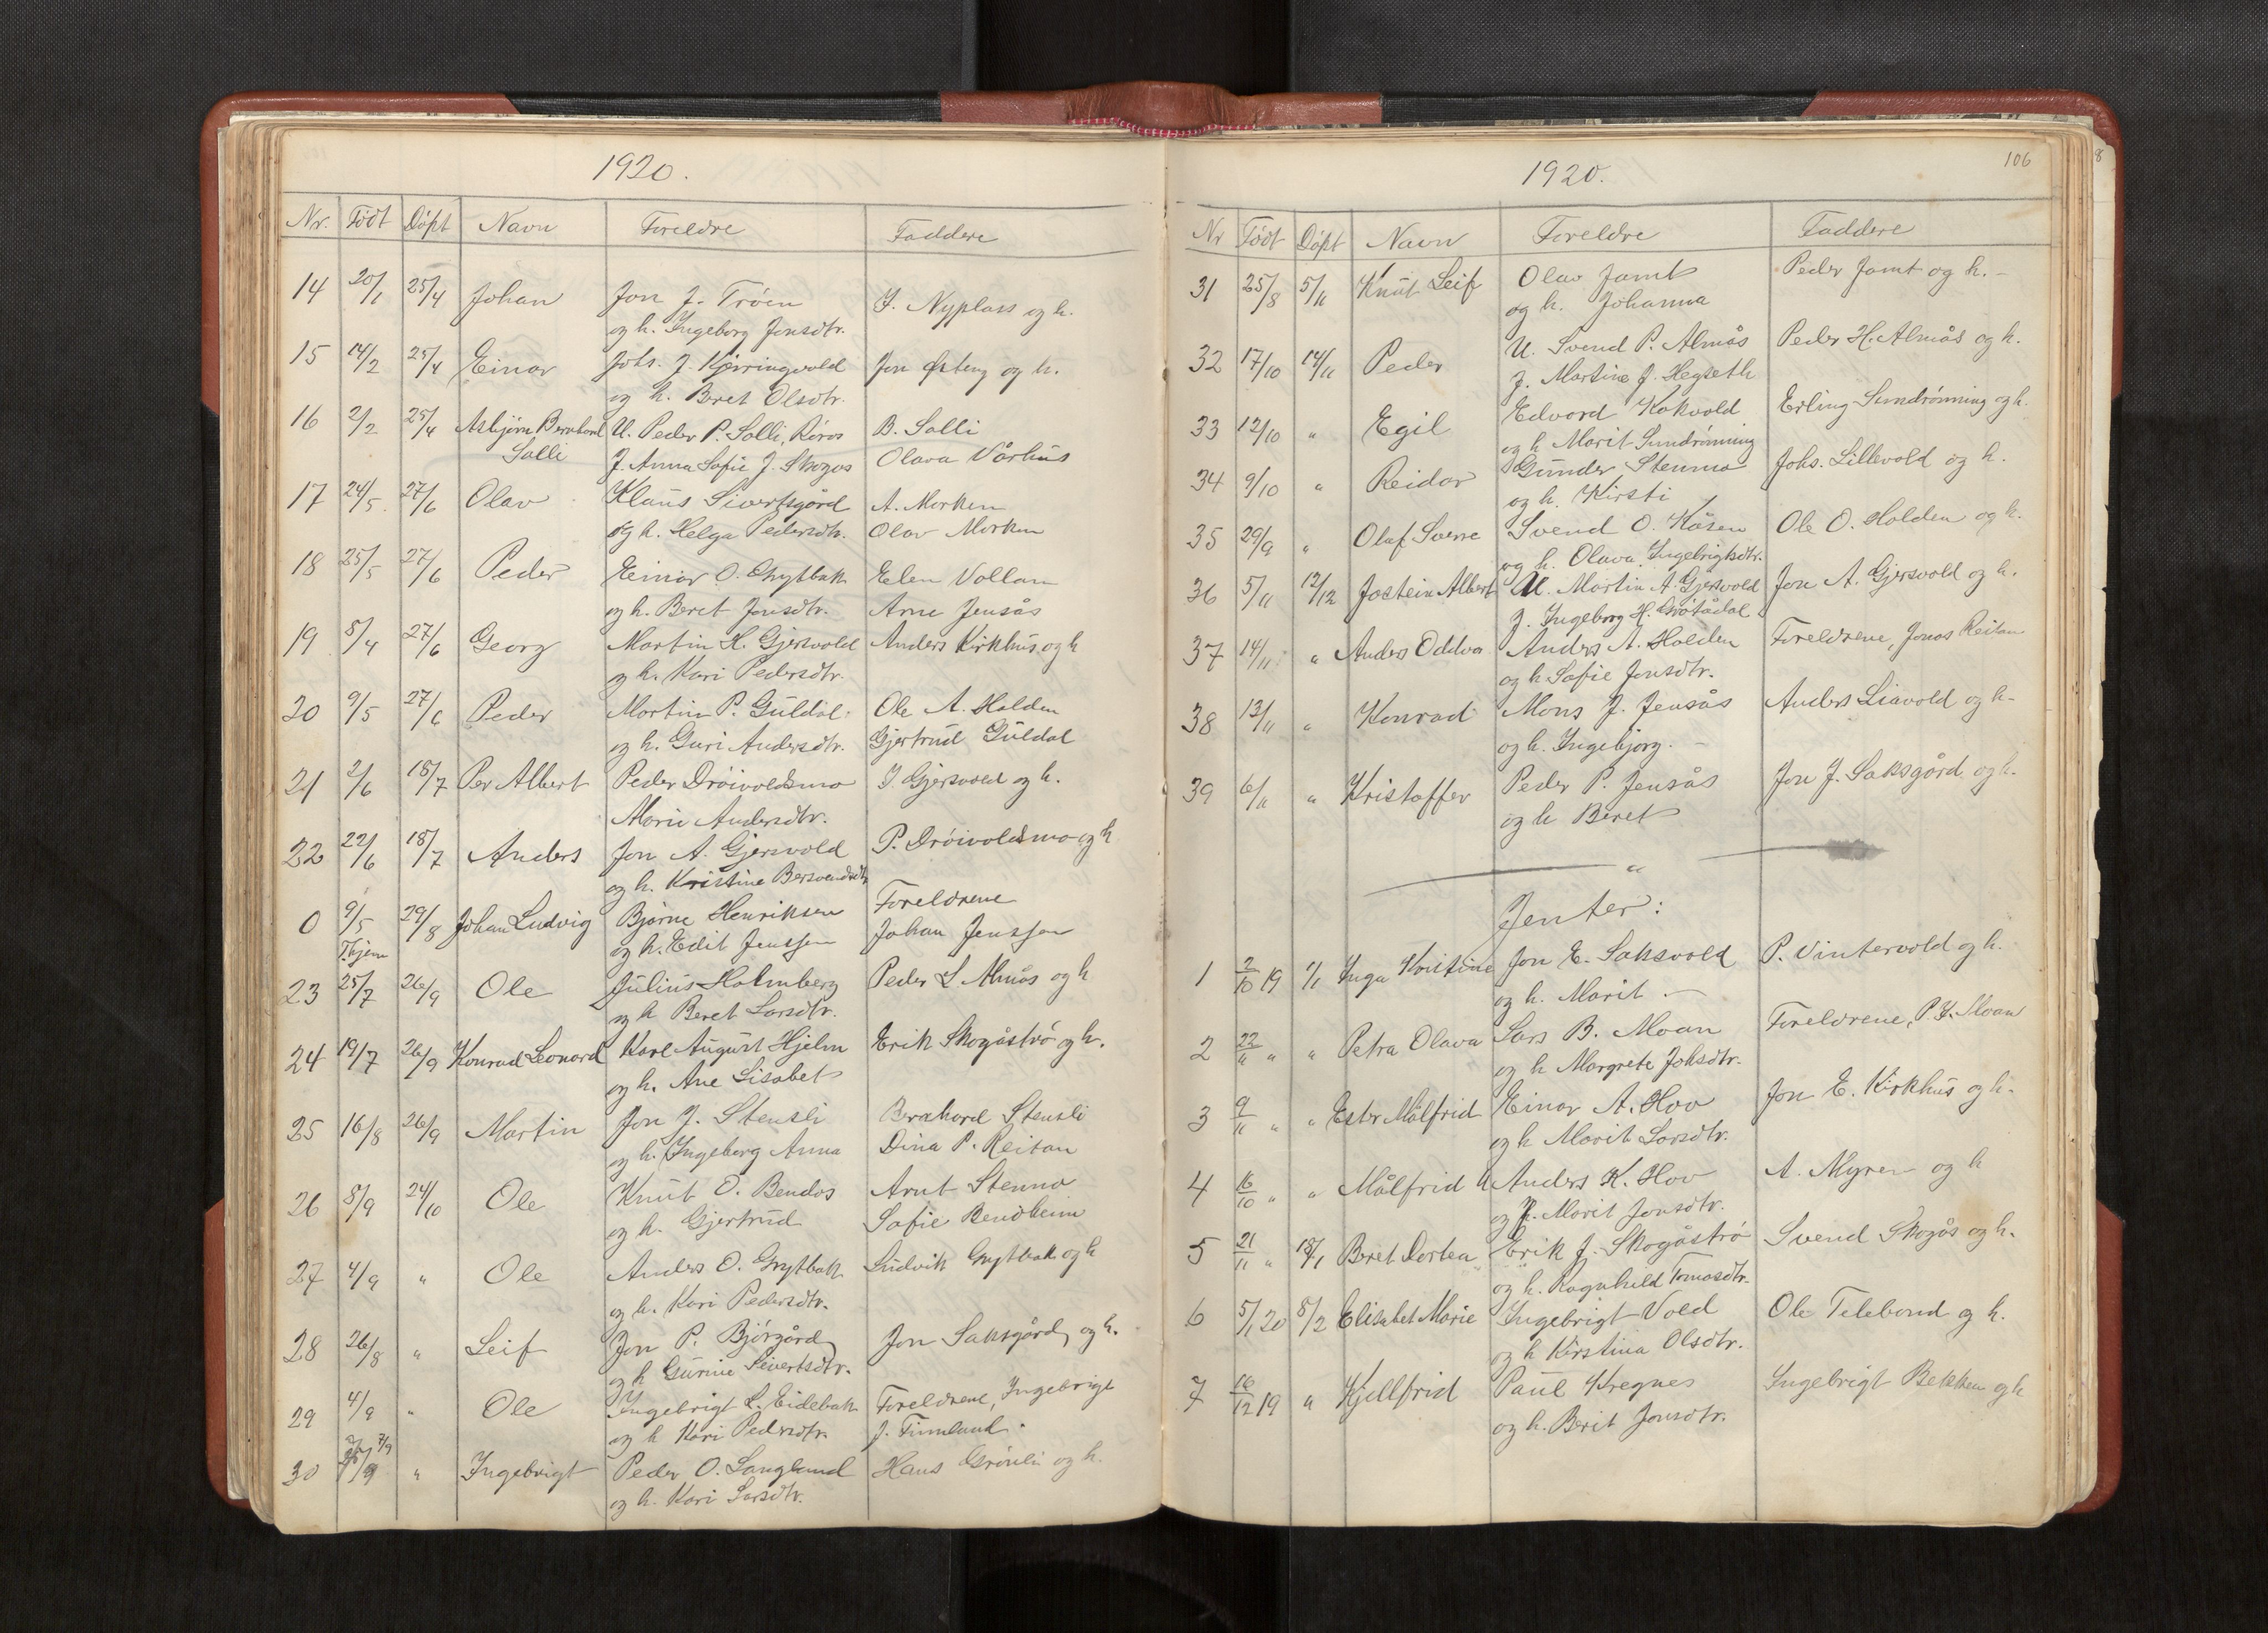 1920.
Nr. Født Døpt Navn Foreldre Faddere
14 20/1 25/4 Johan Jon J. Trøen J. Nyplass og h.
og h. Ingeborg Jonsdtr.
15 14/2 25/4 Einar Johs. J. Kjerringvold Jon Østeng og h.
og h. Beret Olsdtr.
16 2/2 25/4 Asbjørn Bernhard U. Peder P. Solli, Røros B. Solli
Solli J. Anna Sofie J. Skogås Olava Vårhus
17 24/5 27/6 Olav Klaus Sivertsgård A. Morken
og h. Helga Pedersdtr. Olav Morken
18 25/5 27/6 Peder Einar O. Grytbak Elen Vollan
og h. Beret Jonsdtr. Arne Jensås
19 8/4 27/6 Georg Martin H. Gjersvold Anders Kirkhus og h
og h. Kari Pedersdtr.
20 9/5 27/6 Peder Martin P. Guldal Ole A. Holden
og h. Guri Andersdtr. Gjertrud Guldal
21 2/6 18/7 Per Albert Peder Drøivoldsmo J. Gjersvold og h.
Marie Andersdtr.
22 22/6 18/7 Anders Jon A. Gjersvold P. Drøivoldsmo og h
og h. Kristine Bersvendsdtr
0 9/5 29/8 Johan Ludvig Bjarne Henriksen Foreldrene
Thjem og h. Edit Jenssen Johan Jenssen
23 25/7 26/9 Ole Julius Holmberg Peder L Almås og h
og h Beret Larsdtr.
24 19/7 26/9 Konrad Leonard Karl August Hjelm Erik Skogåstrø og h.
og h. Ane Lisabet
25 16/8 26/9 Martin Jon J. Stensli Bernhard Stensli
og h. Ingeborg Anna Dina P. Reitan
26 8/9 24/10 Ole Knut O. Bendos Arnt Stenmo
og h. Gjertrud Sofie Bendheim
27 4/9 " Ole Anders O. Grytbak Ludvik Grytbak og h
og h. Kari Pedersdtr.
28 26/8 " Leif Jon P. Bjørgård Jon Saksgård og h.
og h Gurine Sivertsdtr.
29 4/9 " Ole Ingebrigt L. Eidebak Foreldrene, Ingebrigt
og h Kari Pedersdtr. J. Finnland.
7/9
30 " Ingebrigt Peder O. Langland Hans Grønli og h.
og h. Kari Larsdtr.
106
1920.
Nr Født Døpt Navn Foreldre Faddere
31 25/8 5/11 Knut Leif Olav Jamt Peder Jamt og h.
og h. Johanna
32 17/10 14/11 Peder U. Svend P. Almås Peder H. Almås og h.
J. Martine J. Hegseth
33 12/10 " Egil Edvard Kokvold Erling Sundrønning og h.
og h Marit Sundrønning
34 9/10 " Reidar Gunder Stenmo Johs. Lillevold og h.
og h. Kirsti
35 29/9 " Olaf Sverre Svend O. Kåsen Ole O. Holden og h.
og h. Olava Ingebrigtsdtr.
36 5/11 12/12 Jostein Albert U. Martin A. Gjersvold Jon A. Gjersvold og h.
J. Ingeborg H. Grøtådal
37 14/11 " Anders Oddva Anders A. Holden Foreldrene, Jonas Reitan
og h Sofie Jonsdtr.
38 13/11 " Konrad Mons J. Jensås Anders Liavold og h.
og h. Ingebjørg.
39 6/11 " Kristoffer Peder P. Jensås Jon J. Saksgård og h.
og h Beret
"
Jenter:
1 2/10 19 1/1 Inga Kristine Jon E. Saksvold P. Vintervold og h.
og h. Marit.
2 22/11 " " Petra Olava Lars B. Moan Foreldrene, P. Y. Moan
og h Margrete Johsdtr.
3 9/11 " " Ester Målfrid Einar A. Hov Jon E. Kirkhus og h.
og h Marit Larsdtr.
4 16/10 " " Målfrid Anders K. Hov A. Myren og h
og h. Marit Jonsdtr.
5 21/11 " 18/1 Beret Dortea Erik J. Skogåstrø Svend Skogås og h.
og h. Ragnhild Tomasdtr.
6 5/1 20 8/2 Elisabet Marie Ingebrigt Vold Ole Telebond og h.
og h Kirstina Olsdtr.
7 16/12 19 " Kjellfrid Paul Kregnes Ingebrigt Bekken og h
og h. Berit Jonsdtr.